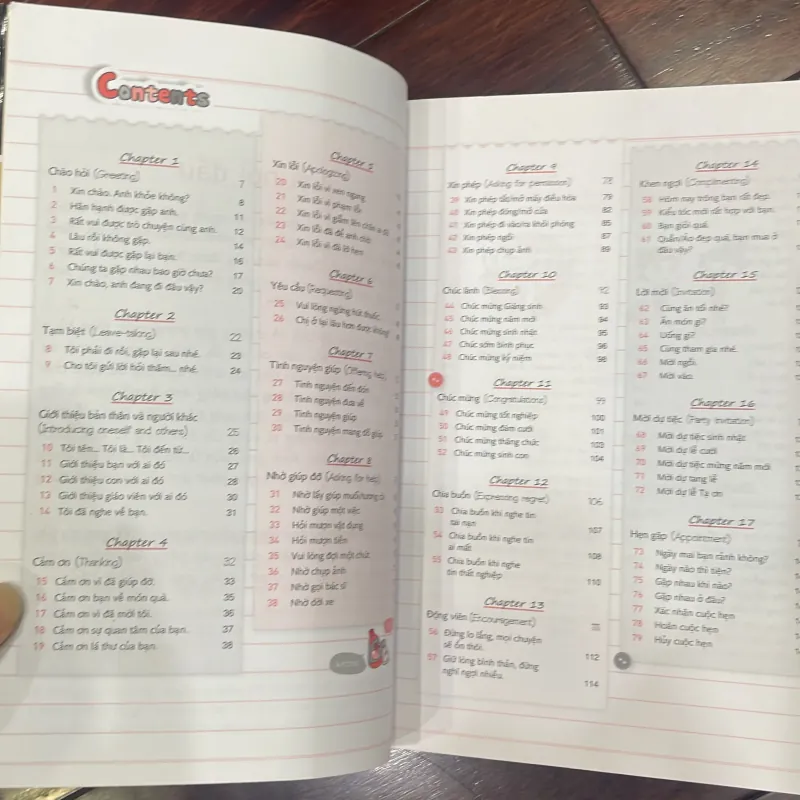 Contents
Chapter 1
Chào hỏi (Greeting) 7
1 Xin chào. Anh khỏe không? 8
2 Hân hạnh được gặp anh. 11
3 Rất vui được trò chuyện cùng anh. 12
4 Lâu rồi không gặp. 14
5 Rất vui được gặp lại bạn. 16
6 Chúng ta gặp nhau bao giờ chưa? 17
7 Xin chào, anh đang đi đâu vậy? 20
Chapter 2
Tạm biệt (Leave-taking) 22
8 Tôi phải đi rồi, gặp lại sau nhé. 23
9 Cho tôi gửi lời hỏi thăm... nhé. 24
Chapter 3
Giới thiệu bản thân và người khác
(Introducing oneself and others) 25
10 Tôi tên... Tôi là... Tôi đến từ... 26
11 Giới thiệu bạn với ai đó 27
12 Giới thiệu con với ai đó 28
13 Giới thiệu giáo viên với ai đó 30
14 Tôi đã nghe về bạn. 31
Chapter 4
Cảm ơn (Thanking) 32
15 Cảm ơn vì đã giúp đỡ. 33
16 Cảm ơn bạn về món quà. 35
17 Cảm ơn vì đã mời tôi. 36
18 Cảm ơn sự quan tâm của bạn. 37
19 Cảm ơn lá thư của bạn. 38
Chapter 5
Xin lỗi (Apologizing)
20 Xin lỗi vì xen ngang
21 Xin lỗi vì phạm lỗi
22 Xin lỗi vì giẫm lên chân ai đó
23 Xin lỗi đã để anh chờ
24 Xin lỗi vì đã lỡ hẹn
Chapter 6
Yêu cầu (Requesting)
25 Vui lòng ngừng hút thuốc.
26 Chị ở lại lâu hơn được không
Chapter 7
Tình nguyện giúp (Offering help)
27 Tình nguyện đến đón
28 Tình nguyện đưa về
29 Tình nguyện giúp
30 Tình nguyện mang đồ giúp
Chapter 8
Nhờ giúp đỡ (Asking for help)
31 Nhờ lấy giúp muối/tương ớt
32 Nhờ giúp một việc
33 Hỏi mượn vật dụng
34 Hỏi mượn tiền
35 Vui lòng đợi một chút
36 Nhờ chụp ảnh
37 Nhờ gọi bác sĩ
38 Nhờ dời xe
Chapter 9
Xin phép (Asking for permission) 78
39 Xin phép tắt/mở máy điều hòa 79
40 Xin phép đóng/mở cửa 82
41 Xin phép đi vào/ra khỏi phòng 85
42 Xin phép ngồi 87
43 Xin phép chụp ảnh 89
Chapter 10
Chúc lành (Blessing) 92
44 Chúc mừng Giáng sinh 93
45 Chúc mừng năm mới 94
46 Chúc mừng sinh nhật 95
47 Chúc sớm bình phục 96
48 Chúc mừng kỷ niệm 98
Chapter 11
Chúc mừng (Congratulations) 99
49 Chúc mừng tốt nghiệp 100
50 Chúc mừng đám cưới 101
51 Chúc mừng thăng chức 103
52 Chúc mừng sinh con 104
Chapter 12
Chia buồn (Expressing regret) 106
53 Chia buồn khi nghe tin
tai nạn 107
54 Chia buồn khi nghe tin
ai mất 108
55 Chia buồn khi nghe
tin thất nghiệp 110
Chapter 13
Động viên (Encouragement) 111
56 Đừng lo lắng, mọi chuyện
sẽ ổn thôi. 112
57 Giữ lòng bình thản, đừng
nghĩ ngợi nhiều. 114
Chapter 14
Khen ngợi (Complimenting)
58 Hôm nay trông bạn rất đẹp.
59 Kiểu tóc mới rất hợp với bạn.
60 Bạn giỏi quá.
61 Quần/Áo đẹp quá, bạn mua ở
đâu vậy?
Chapter 15
Lời mời (Invitation)
62 Cùng ăn tối nhé?
63 Ăn món gì?
64 Uống gì?
65 Cùng tham gia nhé.
66 Mời ngồi.
67 Mời vào.
Chapter 16
Mời dự tiệc (Party invitation)
68 Mời dự tiệc sinh nhật
69 Mời dự lễ cưới
70 Mời dự tiệc mừng năm mới
71 Mời dự tang lễ
72 Mời dự lễ Tạ ơn
Chapter 17
Hẹn gặp (Appointment)
73 Ngày mai bạn rảnh không?
74 Ngày nào thì tiện?
75 Gặp nhau khi nào?
76 Gặp nhau ở đâu?
77 Xác nhận cuộc hẹn
78 Hoãn cuộc hẹn
79 Hủy cuộc hẹn